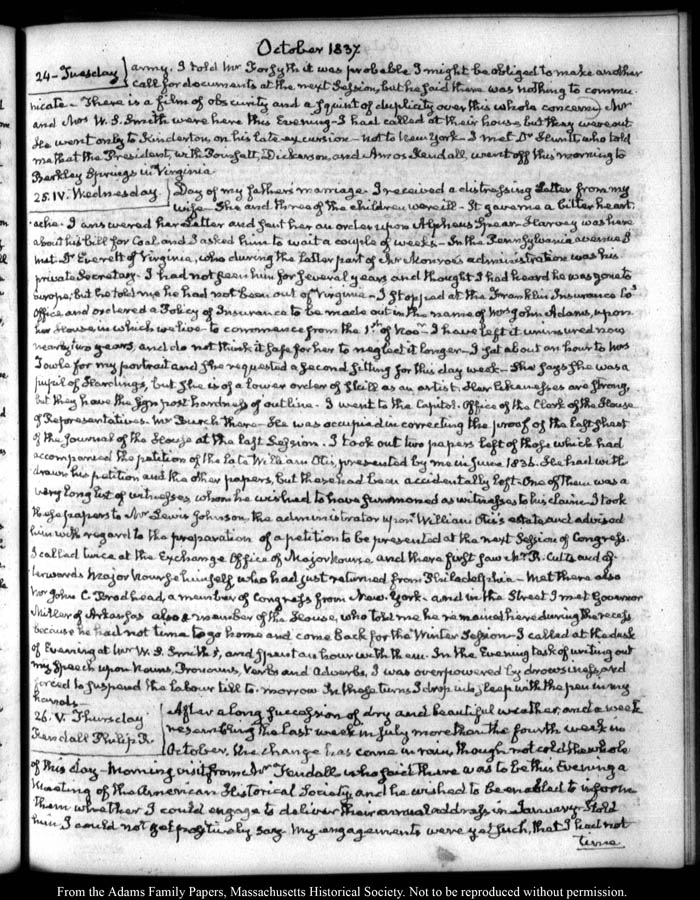 October 1837
24 - Tuesday army. I told Mr Forsyth it was probable I might be obliged to make another
call for documents at the next Session, but he said there was nothing to commu
nicate - There is a film of obscurity and a squint of duplicity over this whole concern Mr
and Mrs W. S. Smith were here this Evening - I had called at their house but they were out
He went only to Kinderton, on his late excursion - not to New York - I met Dr Hunt, who told
me that the President, with Dickerson, and Amos Kendall, went off this morning to
Berkley Springs in Virginia
25. IV. Wednesday. Day of my father's marriage. I received a distressing Letter from my
wife. She and three of the children were ill - It gave me a bitter heart
ache. I answered her Letter and sent her an order upon Alpheus Spear - Harvey was here
about his bill for Coal, and I asked him to wait a couple of weeks - In the Pennsylvania avenue I
met Dr Everett of Virginia, who during the latter part of Mr Monroe's administration was his
private Secretary - I had not seen him for several years and thought I had heard he was gone to
Europe, but he told me he had not been out of Virginia - I stopped at the Franklin Insurance Co's
Office and ordered a Policy of Insurance to be made out in the name of Mrs John Adams, upon
her House in which we live - to commence from the 1st of Novr I have left it uninsured now
nearly two years, and do not think it safe for her to neglect it longer - I sat about an hour to Mrs
Towle for my portrait and she requested a second sitting for this day week - She says she was a
pupil of Hardings, but she is of a lower order of skill as an artist. Her likenesses are strong,
but they have the sign post hardness of outline. I went to the Capitol. Office of the Clerk of the House
of Representatives. Mr Burch there - He was occupied in correcting the proof of the last sheet
of the Journal of the House at the last Session. I took out two papers left of those which had
accompanied the petition of the late William Otis, presented by me in June 1836. He had with
drawn his petition and the other papers, but these had been accidentally left - One of them was a
very long list of witnesses whom he wished to have summoned as witnesses to his claim I took
these papers to Mr Lewis Johnson the administrator upon William Otis's estate and advised
him with regard to the preparation of a petition to be presented at the next Session of Congress.
I called twice at the Exchange Office of Major Nourse and there first saw Mr R. Cutts and af-
terwards Major Nourse himself who had just returned from Philadelphia - Met there also
Mr John C. Brodhead, a member of Congress from New York - and in the Street I met Governor
Miller of Arkansas also a member of the House, who told me he remained here during the recess
because he had not time to go home and come back for the Winter Session - I called at the dusk
of Evening at Mr W. S. Smith's, and spent an hour with them. In the Evening task of writing out
my Speech upon Nouns, Pronouns, Verbs and Adverbs, I was overpowered by drowsiness, and
forced to suspend the labour till to-morrow. In these turns I drop into sleep with the pen in my
hands.
26. V. Thursday After a long succession of dry and beautiful weather, and a week
Kendall Philip R. resembling the last week in July more than the fourth week in
October, the change has come in rain, though not cold the whole
of this day - Morning visit from Mr Kendall who said there was to be this Evening a
Meeting of the American Historical Society, and he wished to be enabled to inform
them whether I could engage to deliver their annual address in January. I told
him I could not yet positively say. My engagements were yet such, that I had not
time
From the Adams Family Papers, Massachusetts Historical Society. Not to be reproduced without permission.